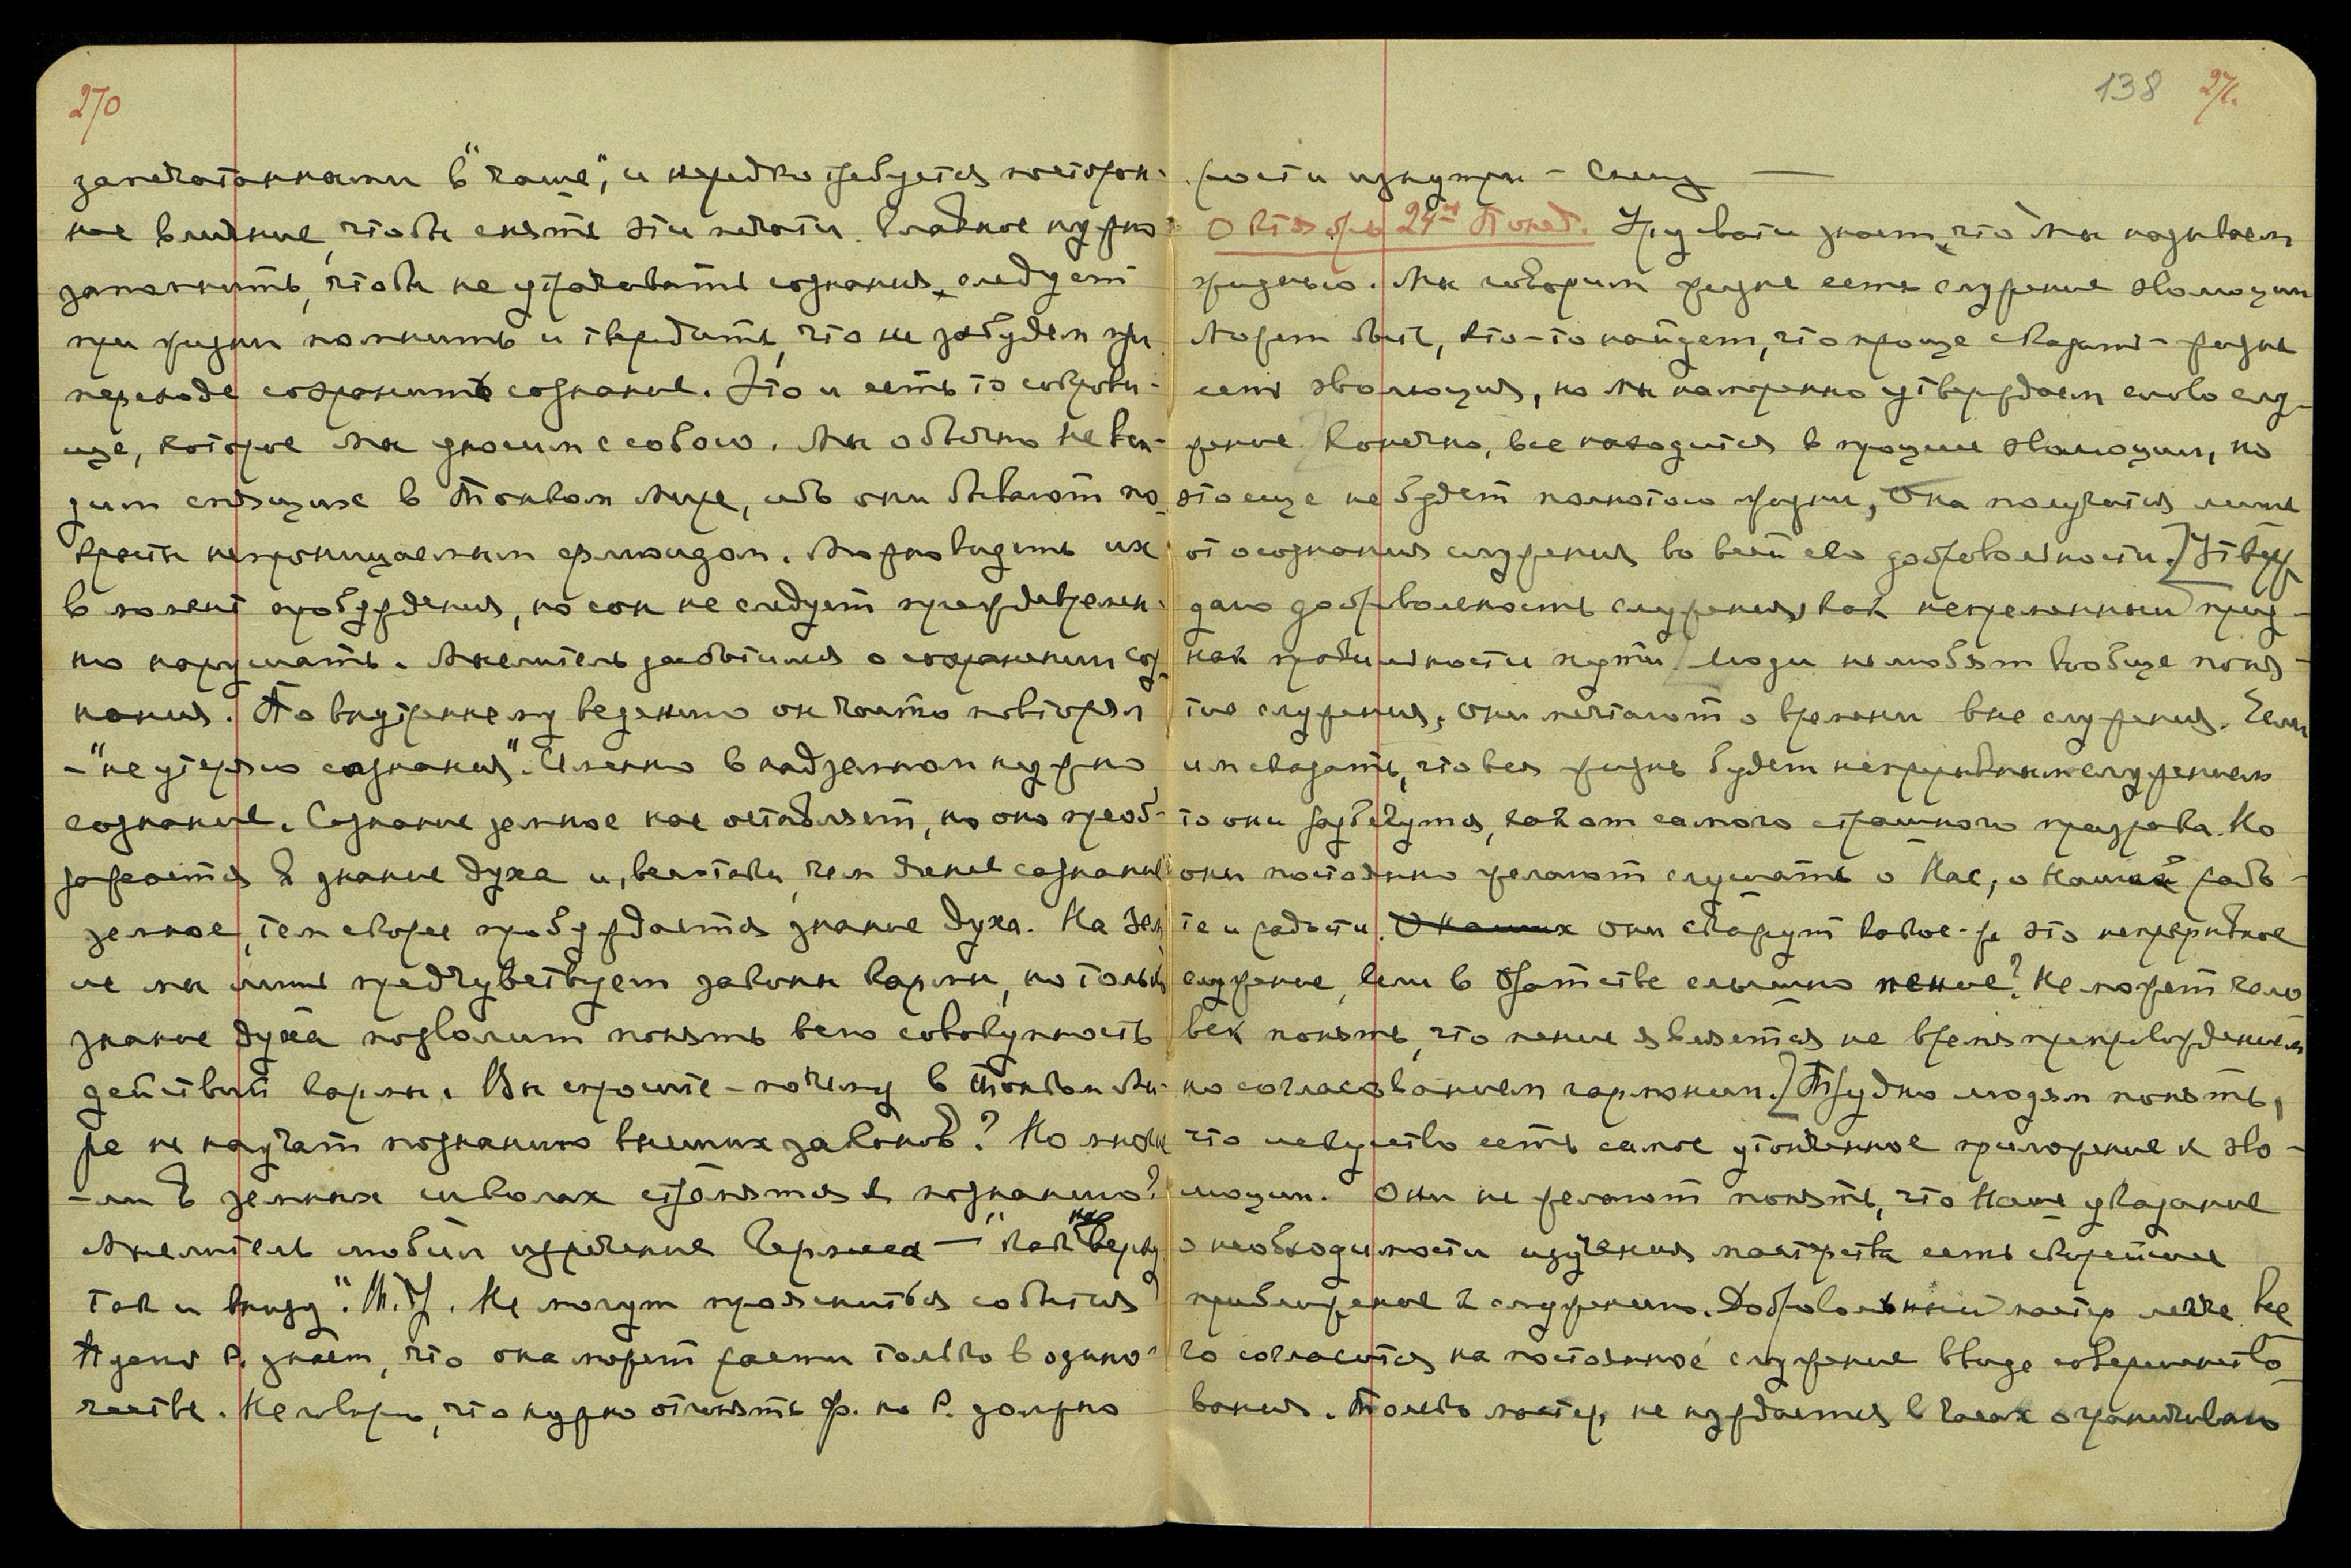 270
запечатанными в "чаше", и нередко требуется посторон-
нее влияние, чтобы снять эти печати. Главное нужно
запомнить, чтобы не утрачивать сознания, следует
при жизни помнить и твердить, что не забудем при
переходе сохранить сознание. Это и есть то сокрови-
ще, которое мы уносим с собою. Мы обычно не ви-
дим спящих в Тонком Мире, ибо они бывают по-
крыты непроницаемым флюидом. Можно видеть их
в момент пробуждения, но сон не следует преждевремен-
но нарушать. Мыслитель заботился о сохранении соз-
нания. По внутреннему ведению он часто повторял
- "не утеряю сознания". Именно в надземном нужно
сознание. Сознание земное нас оставляет, но оно преоб-
ражается в знание духа и, все-таки, чем яснее сознание
земное, тем скорее пробуждается знание духа. На Зем-
ле мы лишь предчувствуем законы кармы, но только
знание духа позволит понять всю совокупность
действий кармы. Вы спросите - почему в Тонком Ми-
ре не научат познанию высших законов? Но многие
-ли в земных школах стремятся к познанию?
Мыслитель любил изречение Гермеса - "как наверху
так и внизу". М.У. Не могут проясниться события
Удрая Р. знает, что она может расти только в одино-
честве. Не говорю, что нужно отменять Ф. но Р. должно
138 271.
рости изнутри - Спешу
Октябрь 24-го Понед. Урусвати знает, что Мы называем
жизнью. Мы говорим жизнь есть служение эволюции
Может быть, кто-то найдет, что проще сказать - жизнь
есть эволюция, но Мы намеренно утверждаем слово слу-
жение. Конечно, все находится в процессе эволюции, но
это еще не будет полнотою жизни, Она получится лишь
от осознания служения во всей его добровольности.] Утверж
даю добровольность служения, как непременный приз-
нак правильности пути. Люди не любят вообще поня-
тие служения, они мечтают о времени вне служения. Если
им сказать, что вся жизнь будет непрерывным служением
то они разбегутся, как от самого страшного призрака. Но
они постоянно желают слушать о Нас, о Нашей рабо-
те и радости. О наших они скажут какое-же это непрерывное
служение, если в Братстве слышно пение? Не может чело
век понять, что пение является не время препровождением
но согласованием гармонии.] Трудно людям понять,
что искусство есть самое утонченное приложение к эво-
люции. Они не желают понять, что Наше указание
о необходимости изучения мастерства есть скорейшее
приближение к служению. Добровольный мастер легче все
го согласится на постоянное служение в виде совершенство-
вания. Только мастер, не нуждается в часах ограничиваю